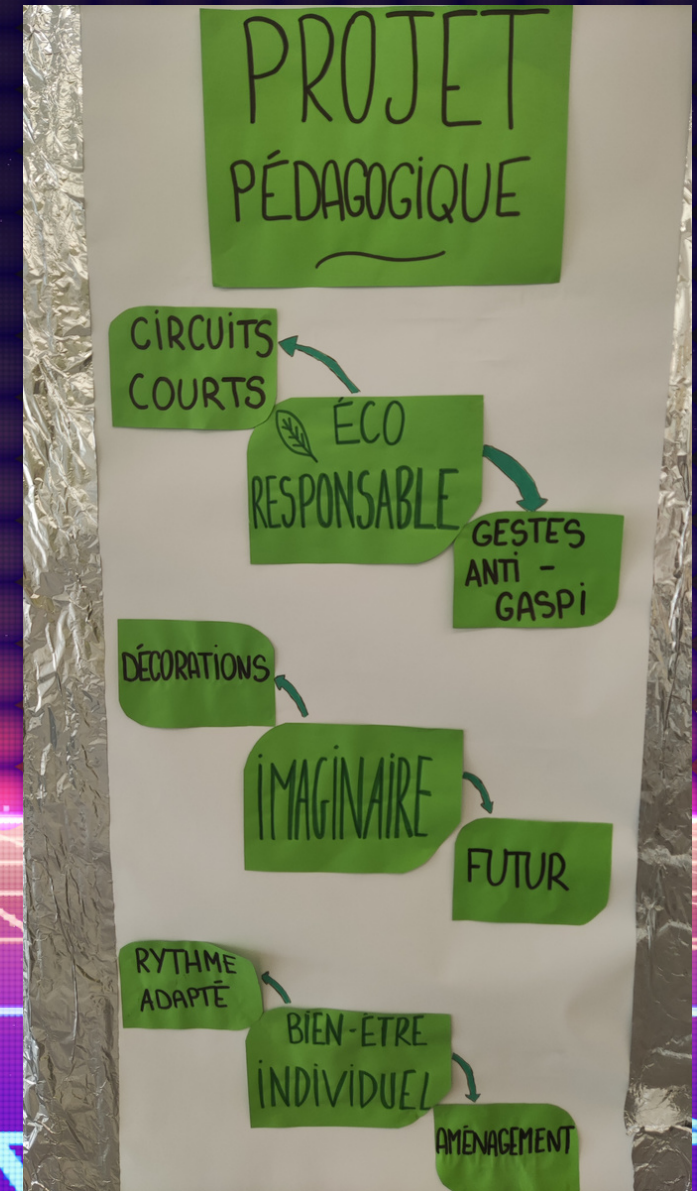 PROJET
PÉDAGOGIQUE
CIRCUITS
COURTS
ÉCO
RESPONSABLE
GESTES
ANTI -
GASPI
DÉCORATIONS
IMAGINAIRE
FUTUR
RYTHME
ADAPTÉ
BIEN-ÊTRE
INDIVIDUEL
AMÉNAGEMENT